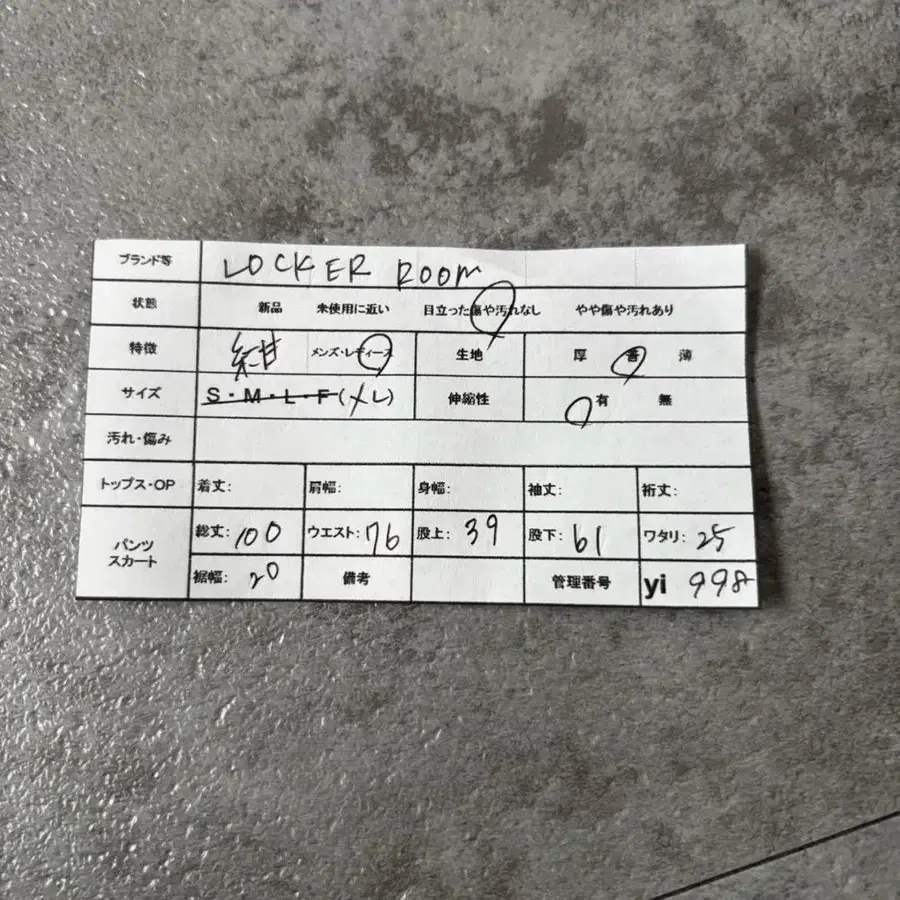 ブランド等 LOCKER ROOM
状態 新品 未使用に近い 目立った傷や汚れなし やや傷や汚れあり
特徴 紺 メンズ・レディース 生地 厚 普 薄
サイズ S・M・L・F(XL) 伸縮性 有 無
汚れ・傷み
トップス・OP 着丈: 肩幅: 身幅: 袖丈: 裄丈:
パンツ スカート 総丈:100 ウエスト:76 股上:39 股下:61 ワタリ:25
裾幅:20 備考 管理番号 yi 998